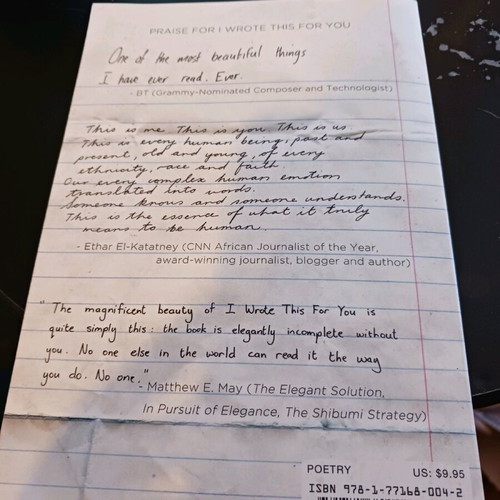 PRAISE FOR I WROTE THIS FOR YOU
One of the most beautiful things
I have ever read. Ever.
- BT (Grammy-Nominated Composer and Technologist)
This is me. This is you. This is us.
This is every human being, past and
present, old and young, of every
ethnicity, race and faith.
Our every complex human emotion
translated into words.
Someone knows and someone understands.
This is the essence of what it truly
means to be human.
- Ethar El-Katatney (CNN African Journalist of the Year,
award-winning journalist, blogger and author)
"The magnificent beauty of I Wrote This For You is
quite simply this: the book is elegantly incomplete without
you. No one else in the world can read it the way
you do. No one."
- Matthew E. May (The Elegant Solution,
In Pursuit of Elegance, The Shibumi Strategy)
POETRY US: $9.95
ISBN 978-1-77168-004-2